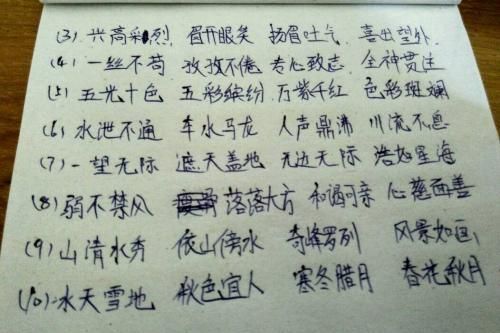 (3) 兴高采烈, 眉开眼笑 扬眉吐气 喜出望外.
(4) 一丝不苟 孜孜不倦 专心致志 全神贯注
(5) 五光十色 五彩缤纷 万紫千红 色彩斑斓
(6) 水泄不通 车水马龙 人声鼎沸 川流不息
(7) 一望无际 遮天盖地 无边无际 浩如星海
(8) 弱不禁风 落落大方 和谒可亲 心慈面善
(9) 山清水秀 依山傍水 奇峰罗列 风景如画,
(10) 冰天雪地 秋色宜人 寒冬腊月 春花秋月